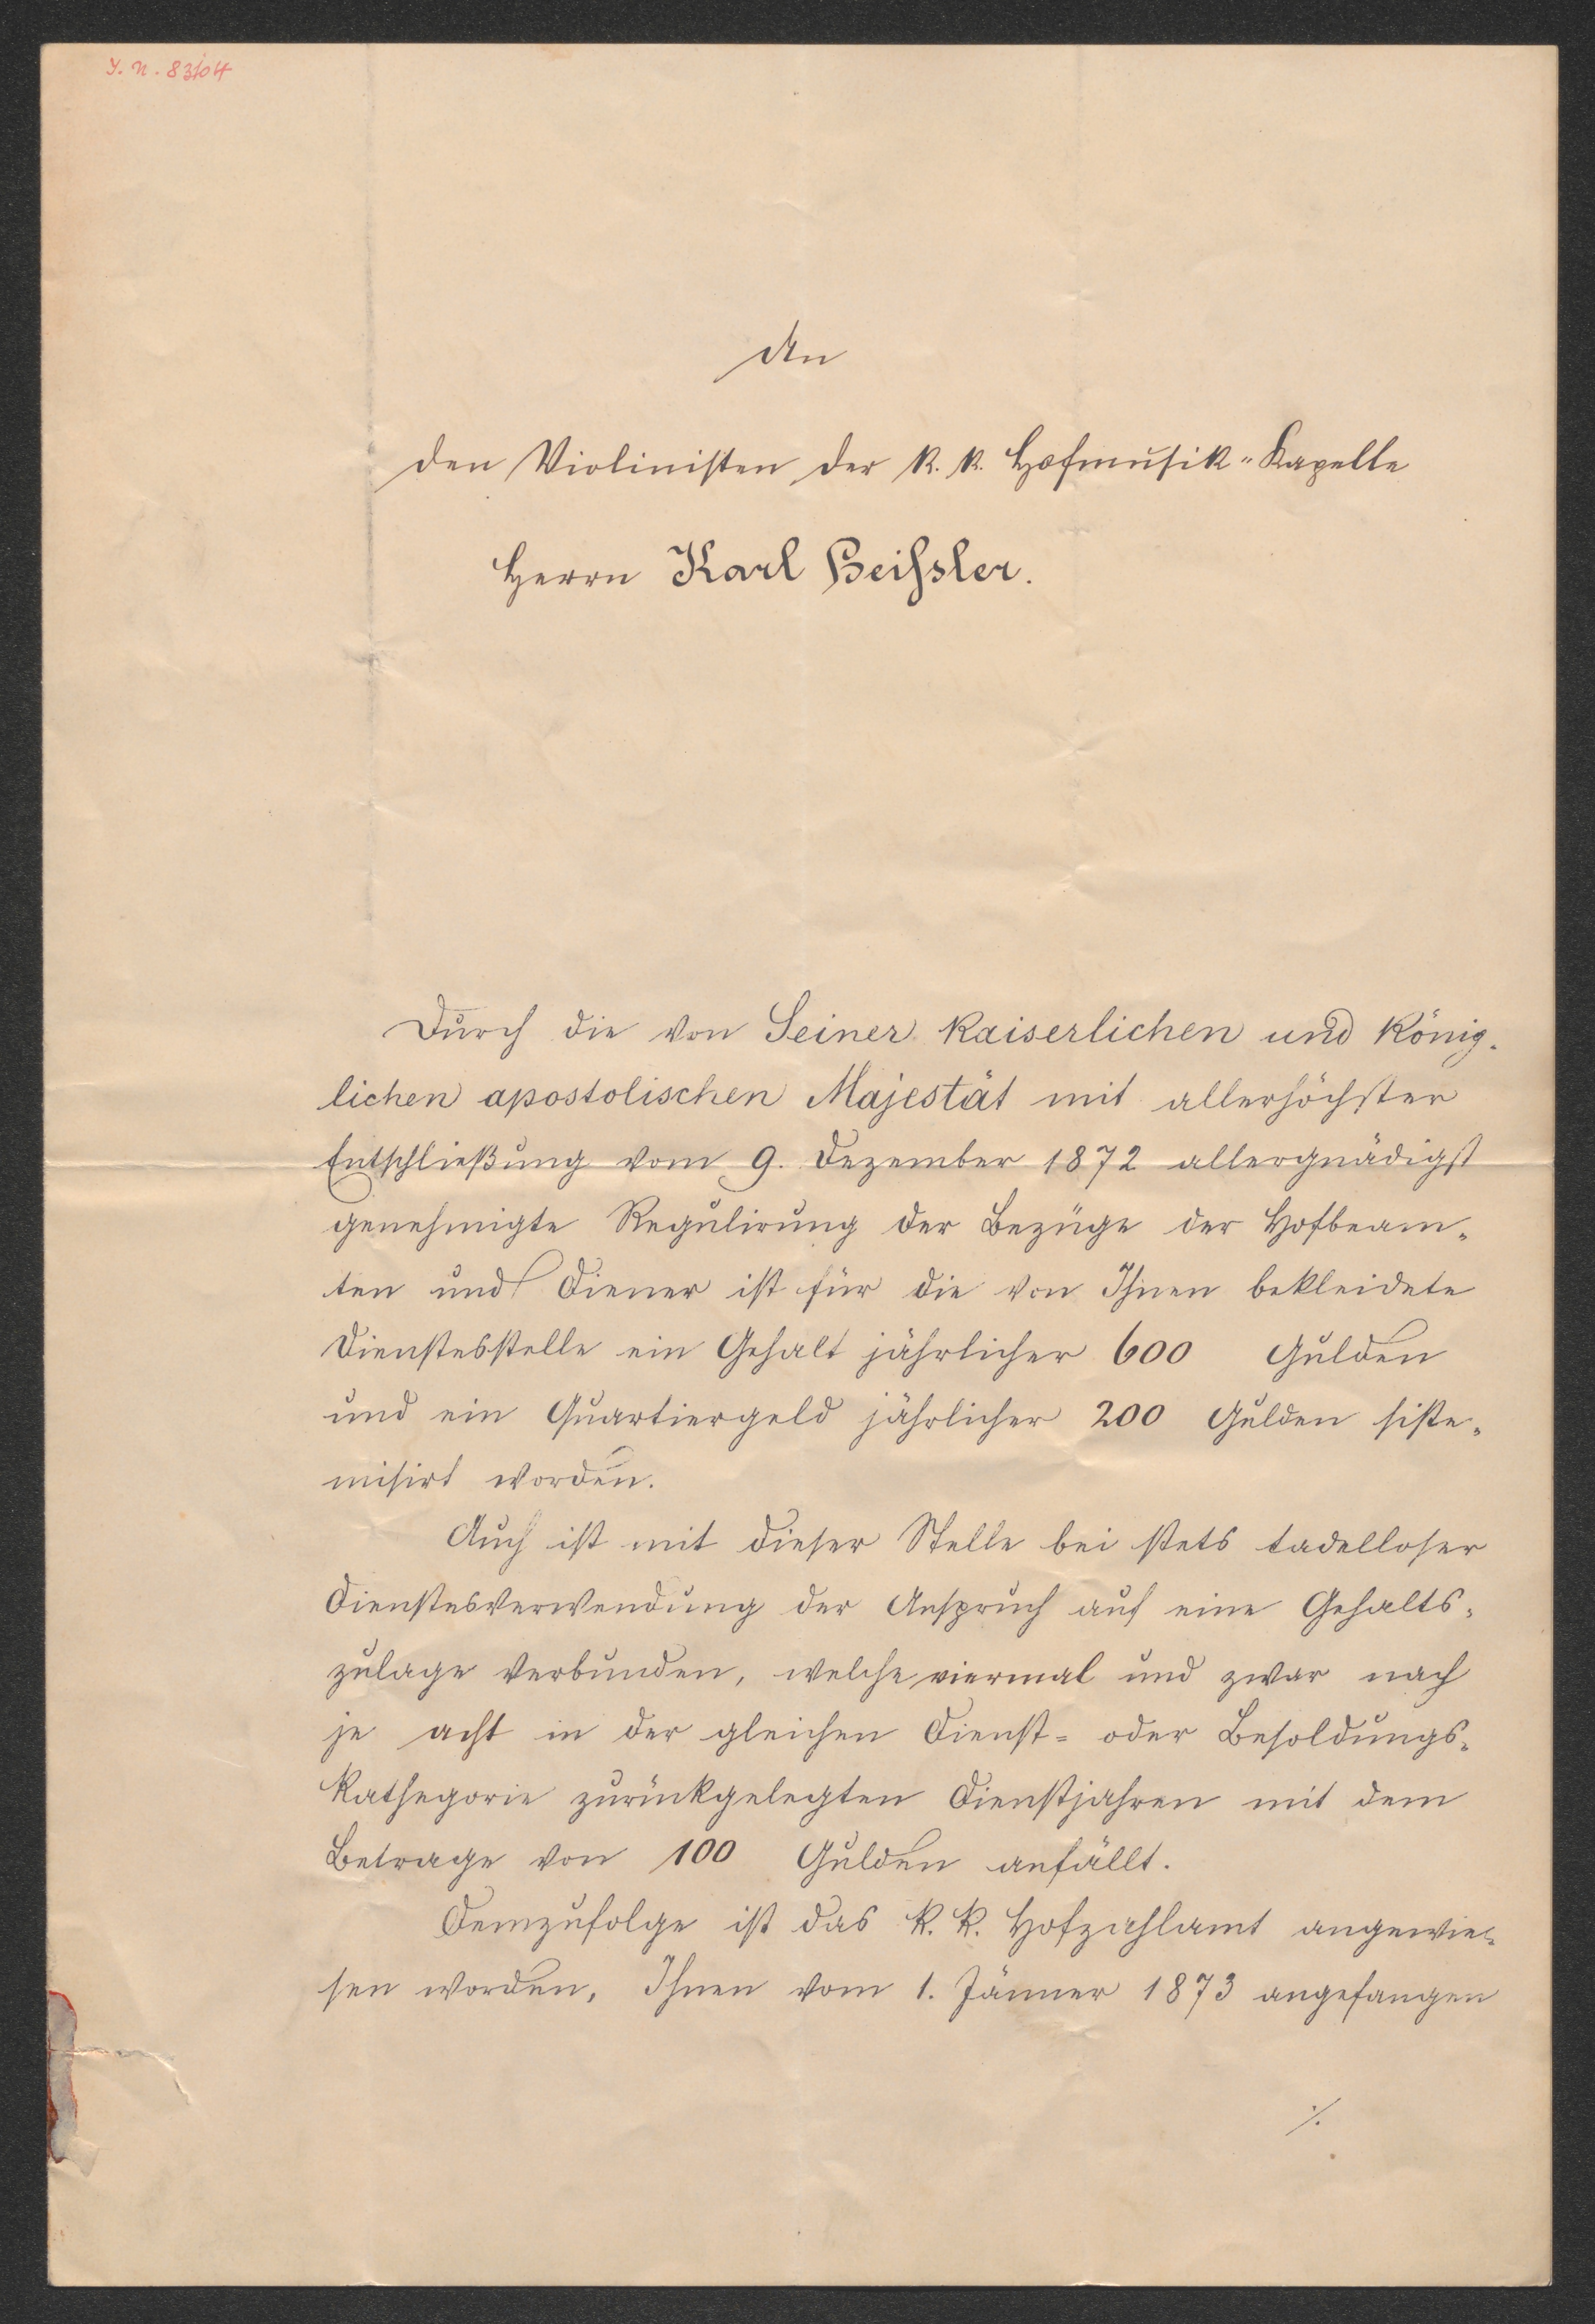 J. N. 83104
An
den Violinisten der k. k. Hofmusik-Kapelle
Herrn Karl Beißler.
Durch die von Seiner kaiserlichen und könig-
lichen apostolischen Majestät mit allerhöchster
Entschließung vom 9. Dezember 1872 allergnädigst
genehmigte Regulirung der Bezüge der Hofbeam-
ten und Diener ist für die von Ihnen bekleidete
Dienstesstelle ein Gehalt jährlicher 600 Gulden
und ein Quartiergeld jährlicher 200 Gulden siste-
misirt worden.
Auch ist mit dieser Stelle bei stets tadelloser
Dienstesverwendung der Anspruch auf eine Gehalts-
zulage verbunden, welche viermal und zwar nach
je acht in der gleichen Dienst- oder Besoldungs-
kathegorie zurückgelegten Dienstjahren mit dem
Betrage von 100 Gulden anfällt.
Demzufolge ist das k. k. Hofzahlamt angewie-
sen worden, Ihnen vom 1. Jänner 1873 angefangen
./.